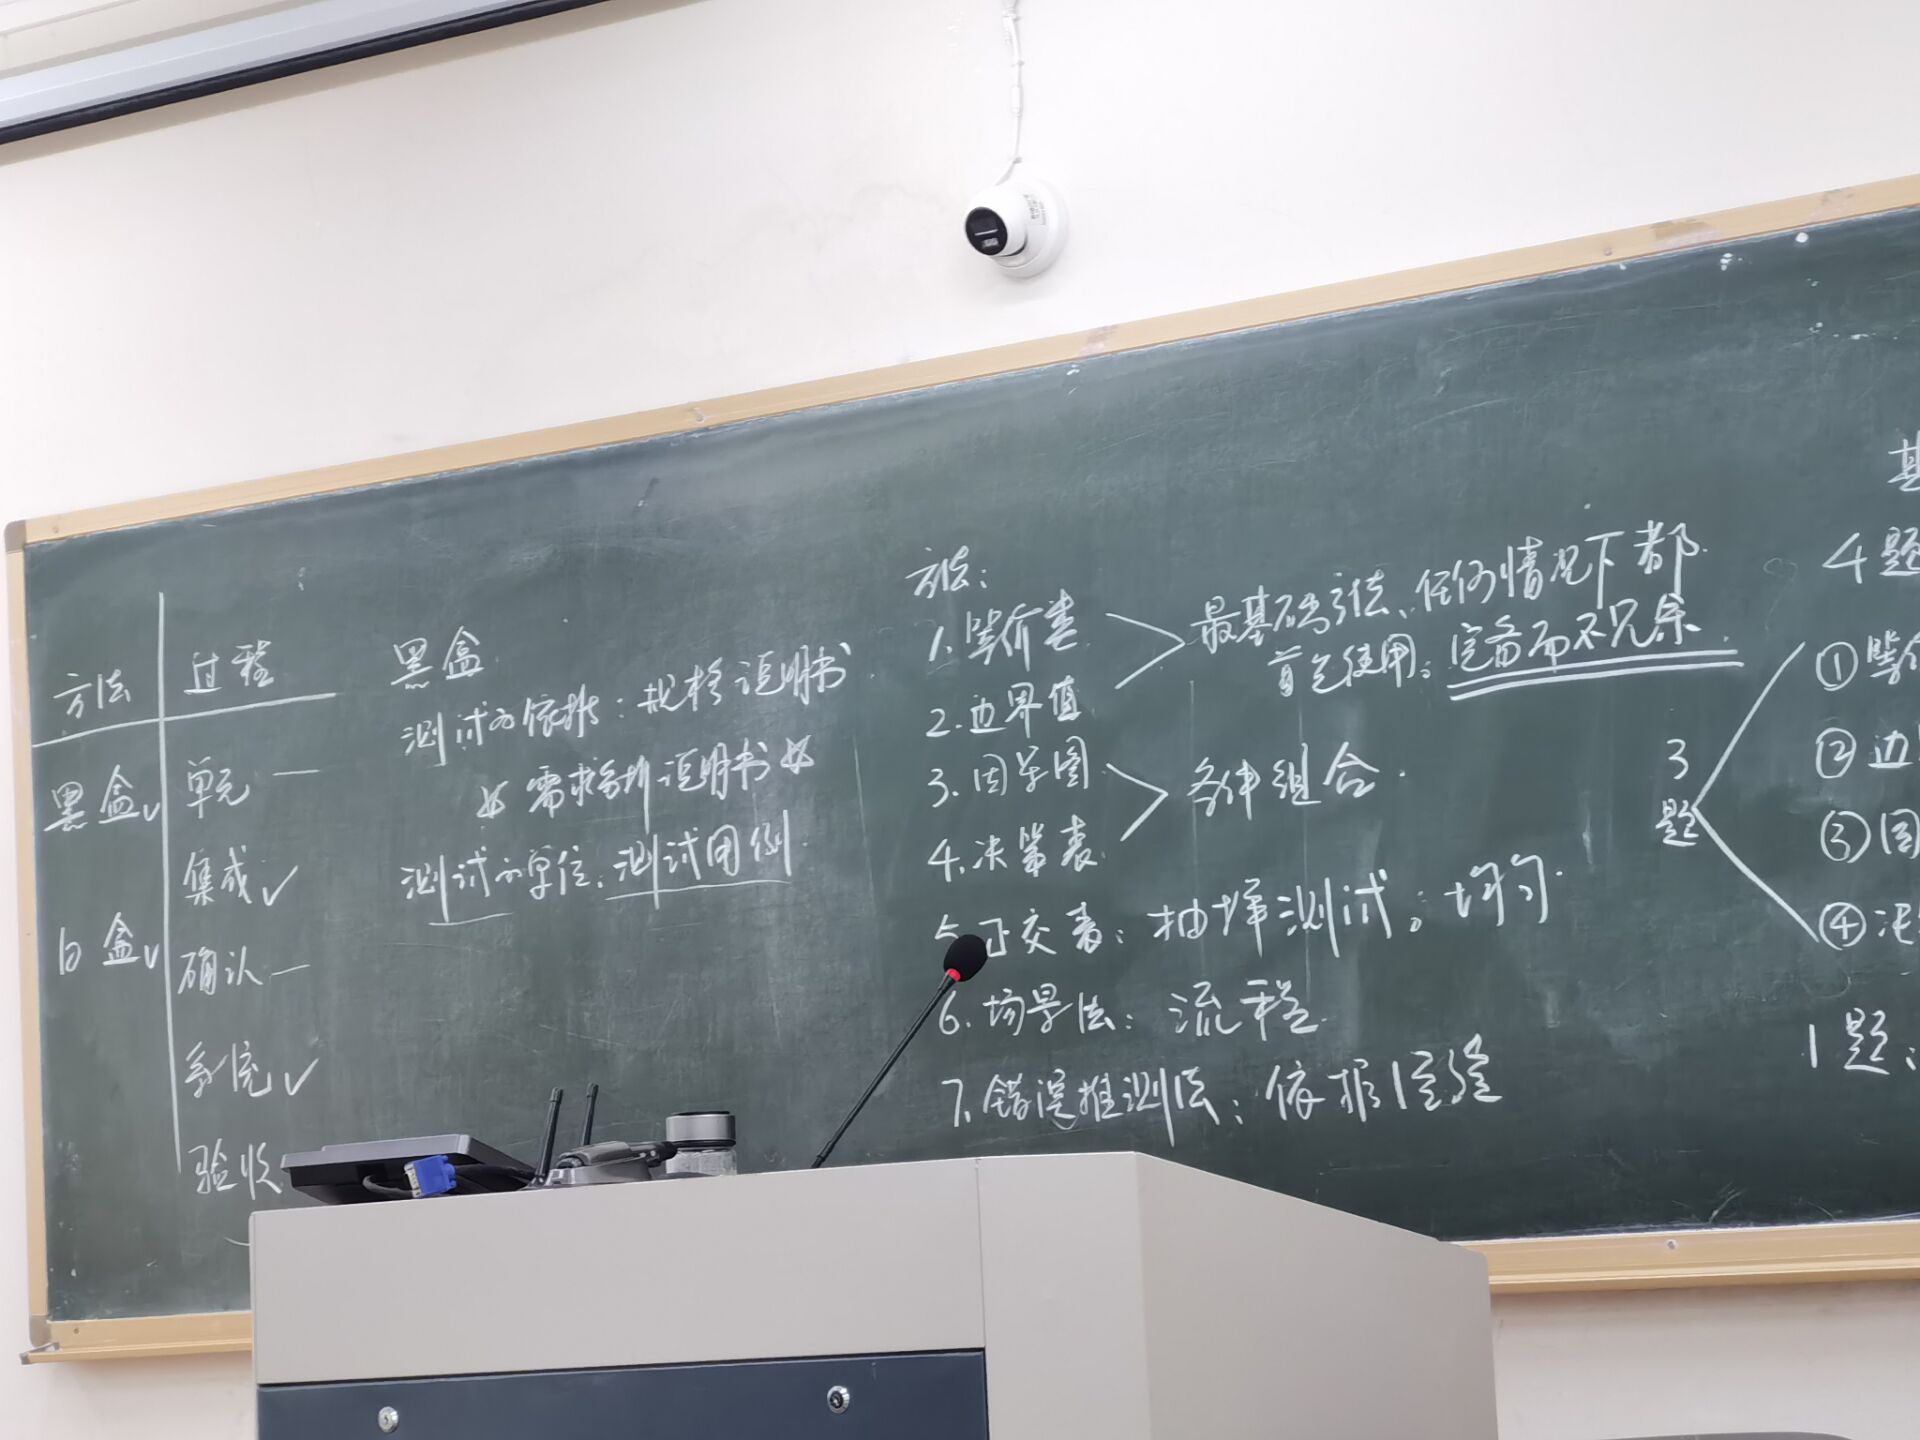 方法 过程
黑盒✓ 单元 —
集成✓
白盒✓ 确认 —
系统✓
验收
黑盒
测试的依据：规格说明书
需求分析说明书
测试的单位：测试用例
方法：
1. 等价类
2. 边界值
最基础方法、任何情况下都
首先使用。完备而不冗余
3. 因果图
4. 决策表
各种组合.
5. 正交表：抽样测试。均匀.
6. 场景法：流程.
7. 错误推测法：依据经验
4题
3
题
① 等价
② 边
③ 因
④
1题：